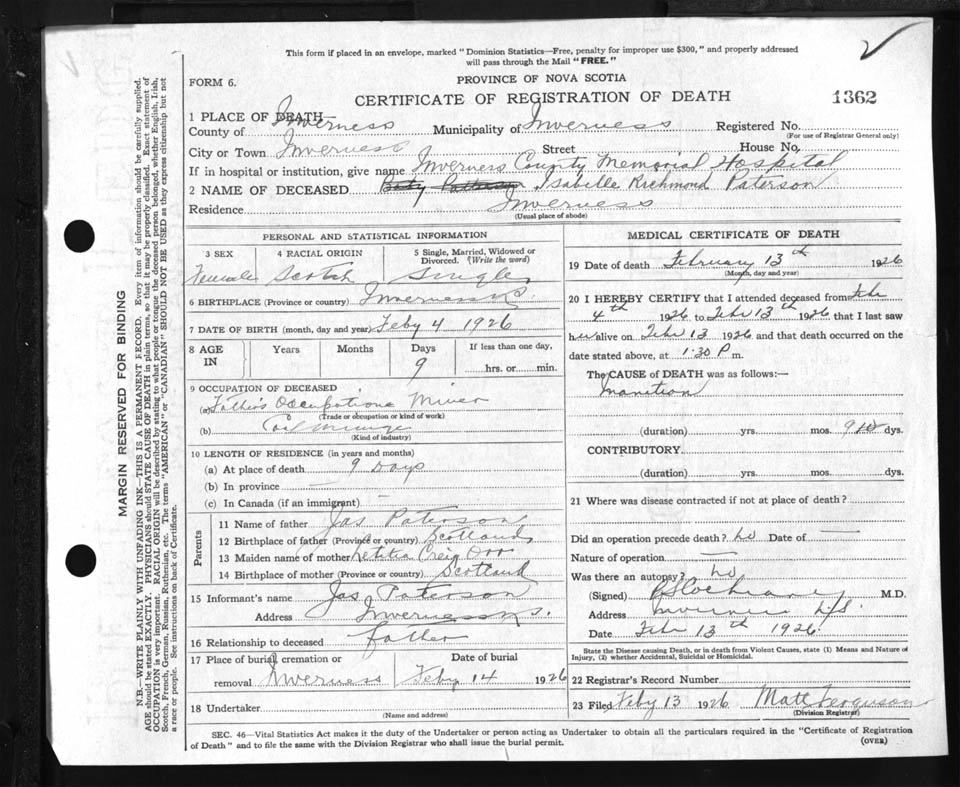 This form if placed in an envelope, marked "Dominion Statistics—Free, penalty for improper use $300," and properly addressed
will pass through the Mail "FREE."
FORM 6.
PROVINCE OF NOVA SCOTIA
CERTIFICATE OF REGISTRATION OF DEATH
1362
1 PLACE OF DEATH—
County of Inverness Municipality of Inverness Registered No.
(For use of Registrar General only)
City or Town Inverness Street House No.
If in hospital or institution, give name Inverness County Memorial Hospital
2 NAME OF DECEASED Baby Patterson Isabelle Richmond Paterson
Residence Inverness
(Usual place of abode)
PERSONAL AND STATISTICAL INFORMATION
3 SEX 4 RACIAL ORIGIN 5 Single, Married, Widowed or
Divorced. (Write the word)
Female Scotch Single
6 BIRTHPLACE (Province or country) Inverness N.S.
7 DATE OF BIRTH (month, day and year) Feby 4 1926
8 AGE IN Years Months Days If less than one day,
9 hrs. or min.
9 OCCUPATION OF DECEASED
(a) Father's Occupation Miner
(Trade or occupation or kind of work)
(b) Coal Mining
(Kind of industry)
10 LENGTH OF RESIDENCE (in years and months)
(a) At place of death 9 Days
(b) In province —
(c) In Canada (if an immigrant) —
Parents
11 Name of father Jas Paterson
12 Birthplace of father (Province or country) Scotland
13 Maiden name of mother Letitia Craig
14 Birthplace of mother (Province or country) Scotland
15 Informant's name Jas Paterson
Address Inverness N.S.
16 Relationship to deceased father
17 Place of burial, cremation or Date of burial
removal Inverness Feby 14 1926
18 Undertaker
(Name and address)
MEDICAL CERTIFICATE OF DEATH
19 Date of death February 13th 1926
(Month, day and year)
20 I HEREBY CERTIFY that I attended deceased from Feb
4th 1926 to Feb 13th 1926 that I last saw
her alive on Feb 13 1926 and that death occurred on the
date stated above, at 1:30 P m.
The CAUSE of DEATH was as follows:—
Inanition
(duration) yrs. mos. 9 dys.
CONTRIBUTORY
(duration) yrs. mos. dys.
21 Where was disease contracted if not at place of death?
Did an operation precede death? No Date of —
Nature of operation —
Was there an autopsy? No
(Signed) M.D.
Address Inverness N.S.
Date Feb 13th 1926
State the Disease causing Death, or in death from Violent Causes, state (1) Means and Nature of
Injury, (2) whether Accidental, Suicidal or Homicidal.
22 Registrar's Record Number
23 Filed Feby 13 1926 Matt Ferguson
(Division Registrar)
SEC. 46—Vital Statistics Act makes it the duty of the Undertaker or person acting as Undertaker to obtain all the particulars required in the "Certificate of Registration
of Death" and to file the same with the Division Registrar who shall issue the burial permit.
(OVER)
MARGIN RESERVED FOR BINDING
N.B.—WRITE PLAINLY WITH UNFADING INK—THIS IS A PERMANENT RECORD. Every item of information should be carefully supplied.
AGE should be stated EXACTLY. PHYSICIANS should STATE CAUSE OF DEATH in plain terms, so that it may be properly classified. Exact statement of
OCCUPATION is very important. RACIAL ORIGIN will be described by stating to what people or tongue the deceased person belonged, whether English, Irish,
Scotch, French, German, Russian, Ruthenian, etc. The terms "AMERICAN" or "CANADIAN" SHOULD NOT BE USED as they express citizenship but not
a race or people. See instructions on back of Certificate.